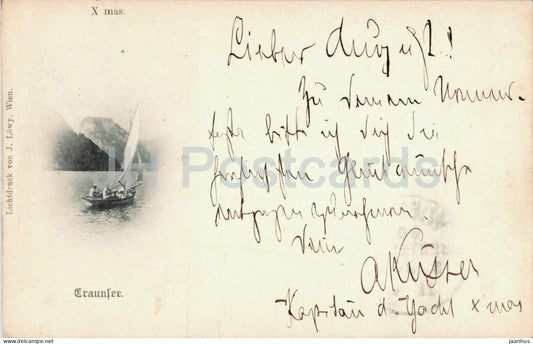 X mas.
Lieber August!
Zu Deinem Namens-
feste bitte ich Dich die
herzlichsten Glückwünsche
entgegenzunehmen.
Dein
AKuster
Kapitän d. Yacht X mas
Traunsee.
Lichtdruck von J. Löwy, Wien.
Postcards
jaanhus